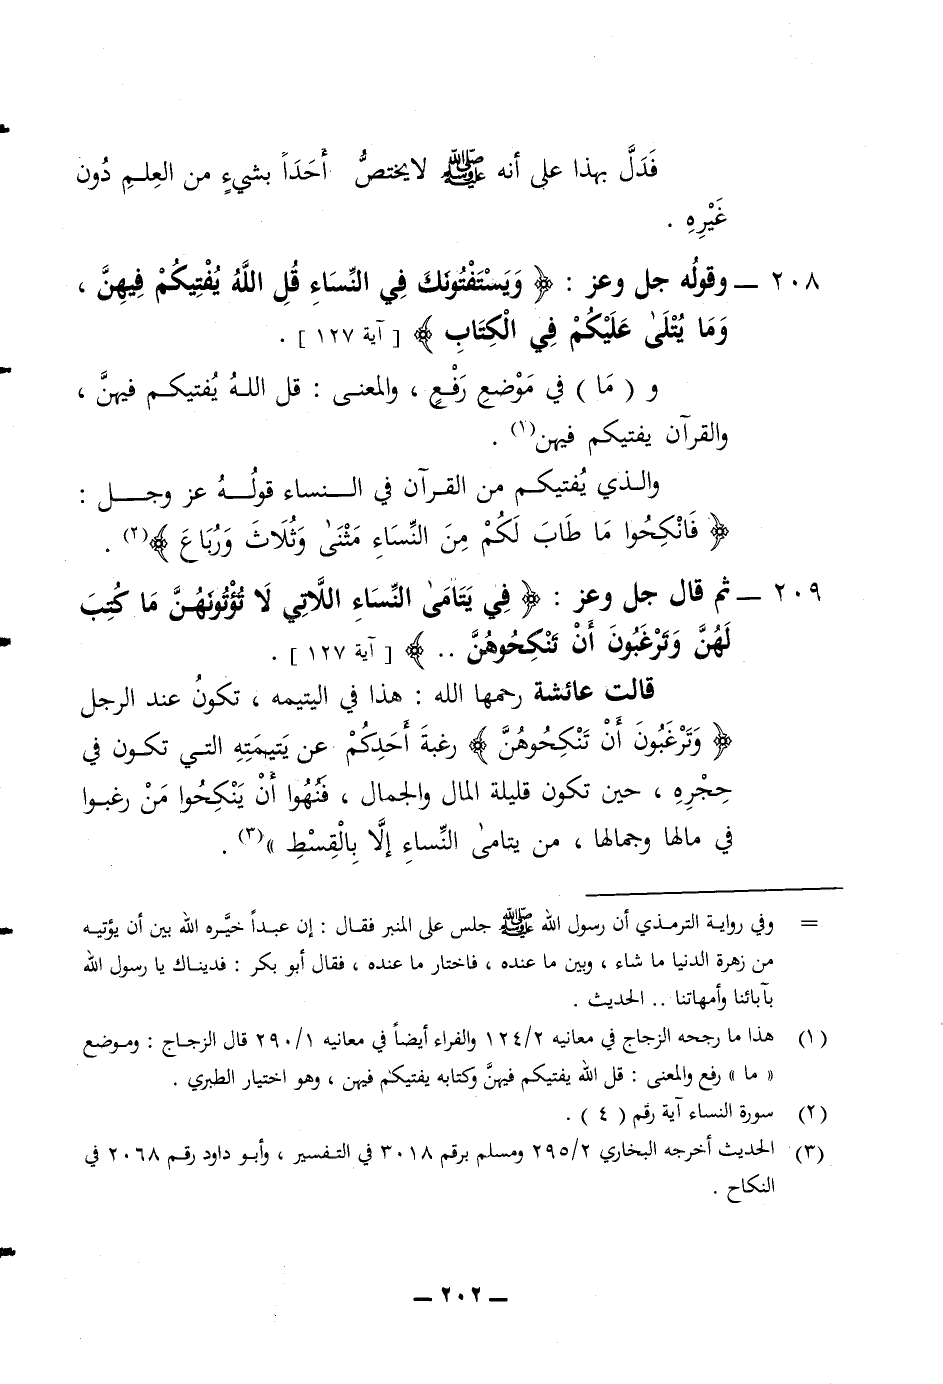 فَدَلَّ بهذا على أنه ﷺ لايختصُّ أَحَدَاً بشيءٍ من العِلمِ دُون
غَيْرِهِ .
٢٠٨ ــ وقولُه جل وعز : ﴿ وَيَسْتَفْتُونَكَ فِي النِّسَاءِ قُلِ اللَّهُ يُفْتِيكُمْ فِيهِنَّ ،
وَمَا يُتْلَىٰ عَلَيْكُمْ فِي الْكِتَابِ ﴾ [ آية ١٢٧ ] .
و ( مَا ) في مَوْضعِ رَفْعٍ ، والمعنى : قل اللهُ يُفتيكم فيهنَّ ،
والقرآن يفتيكم فيهن(١) .
والذي يُفتيكم من القرآن في النساء قولُهُ عز وجل :
﴿ فَانْكِحُوا مَا طَابَ لَكُمْ مِنَ النِّسَاءِ مَثْنَىٰ وَثُلَاثَ وَرُبَاعَ ﴾(٢) .
٢٠٩ ــ ثم قال جل وعز : ﴿ فِي يَتَامَىٰ النِّسَاءِ اللَّاتِي لَا تُؤْتُونَهُنَّ مَا كُتِبَ
لَهُنَّ وَتَرْغَبُونَ أَنْ تَنْكِحُوهُنَّ .. ﴾ [ آية ١٢٧ ] .
قالت عائشة رحمها الله : هذا في اليتيمه ، تكونُ عند الرجل
﴿ وَتَرْغَبُونَ أَنْ تَنْكِحُوهُنَّ ﴾ رغبةَ أَحَدِكُمْ عن يَتِيمَتِهِ التي تكون في
حِجْرِهِ ، حين تكون قليلة المال والجمال ، فَنُهُوا أَنْ يَنْكِحُوا مَنْ رغبوا
في مالها وجمالها ، من يتامىٰ النِّساءِ إلَّا بِالْقِسْطِ »(٣) .
= وفي رواية الترمذي أن رسول الله ﷺ جلس على المنبر فقال : إن عبداً خيَّره الله بين أن يؤتيه
من زهرة الدنيا ما شاء ، وبين ما عنده ، فاختار ما عنده ، فقال أبو بكر : فديناك يا رسول الله
بآبائنا وأمهاتنا .. الحديث .
(١) هذا ما رجحه الزجاج في معانيه ١٢٤/٢ والفراء أيضاً في معانيه ٢٩٠/١ قال الزجاج : وموضع
« ما » رفع والمعنى : قل الله يفتيكم فيهنَّ وكتابه يفتيكم فيهن ، وهو اختيار الطبري .
(٢) سورة النساء آية رقم ( ٤ ) .
(٣) الحديث أخرجه البخاري ٢٩٥/٢ ومسلم برقم ٣٠١٨ في التفسير ، وأبو داود رقم ٢٠٦٨ في
النكاح .
ــ ٢٠٢ ــ